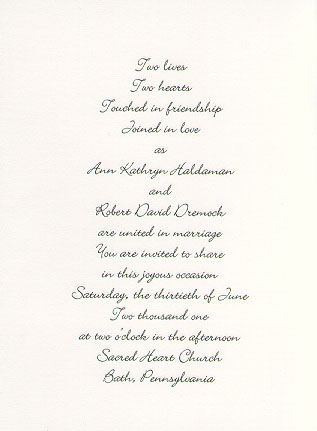 Two lives
Two hearts
Touched in friendship
Joined in love
as
Ann Kathryn Haldaman
and
Robert David Dremock
are united in marriage
You are invited to share
in this joyous occasion
Saturday, the thirtieth of June
Two thousand one
at two o'clock in the afternoon
Sacred Heart Church
Bath, Pennsylvania